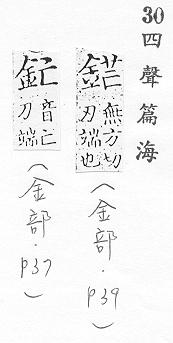 30四聲篇海
鋩無方切刀端也
(金部.P39)
釯音亡刀端
(金部.P37)